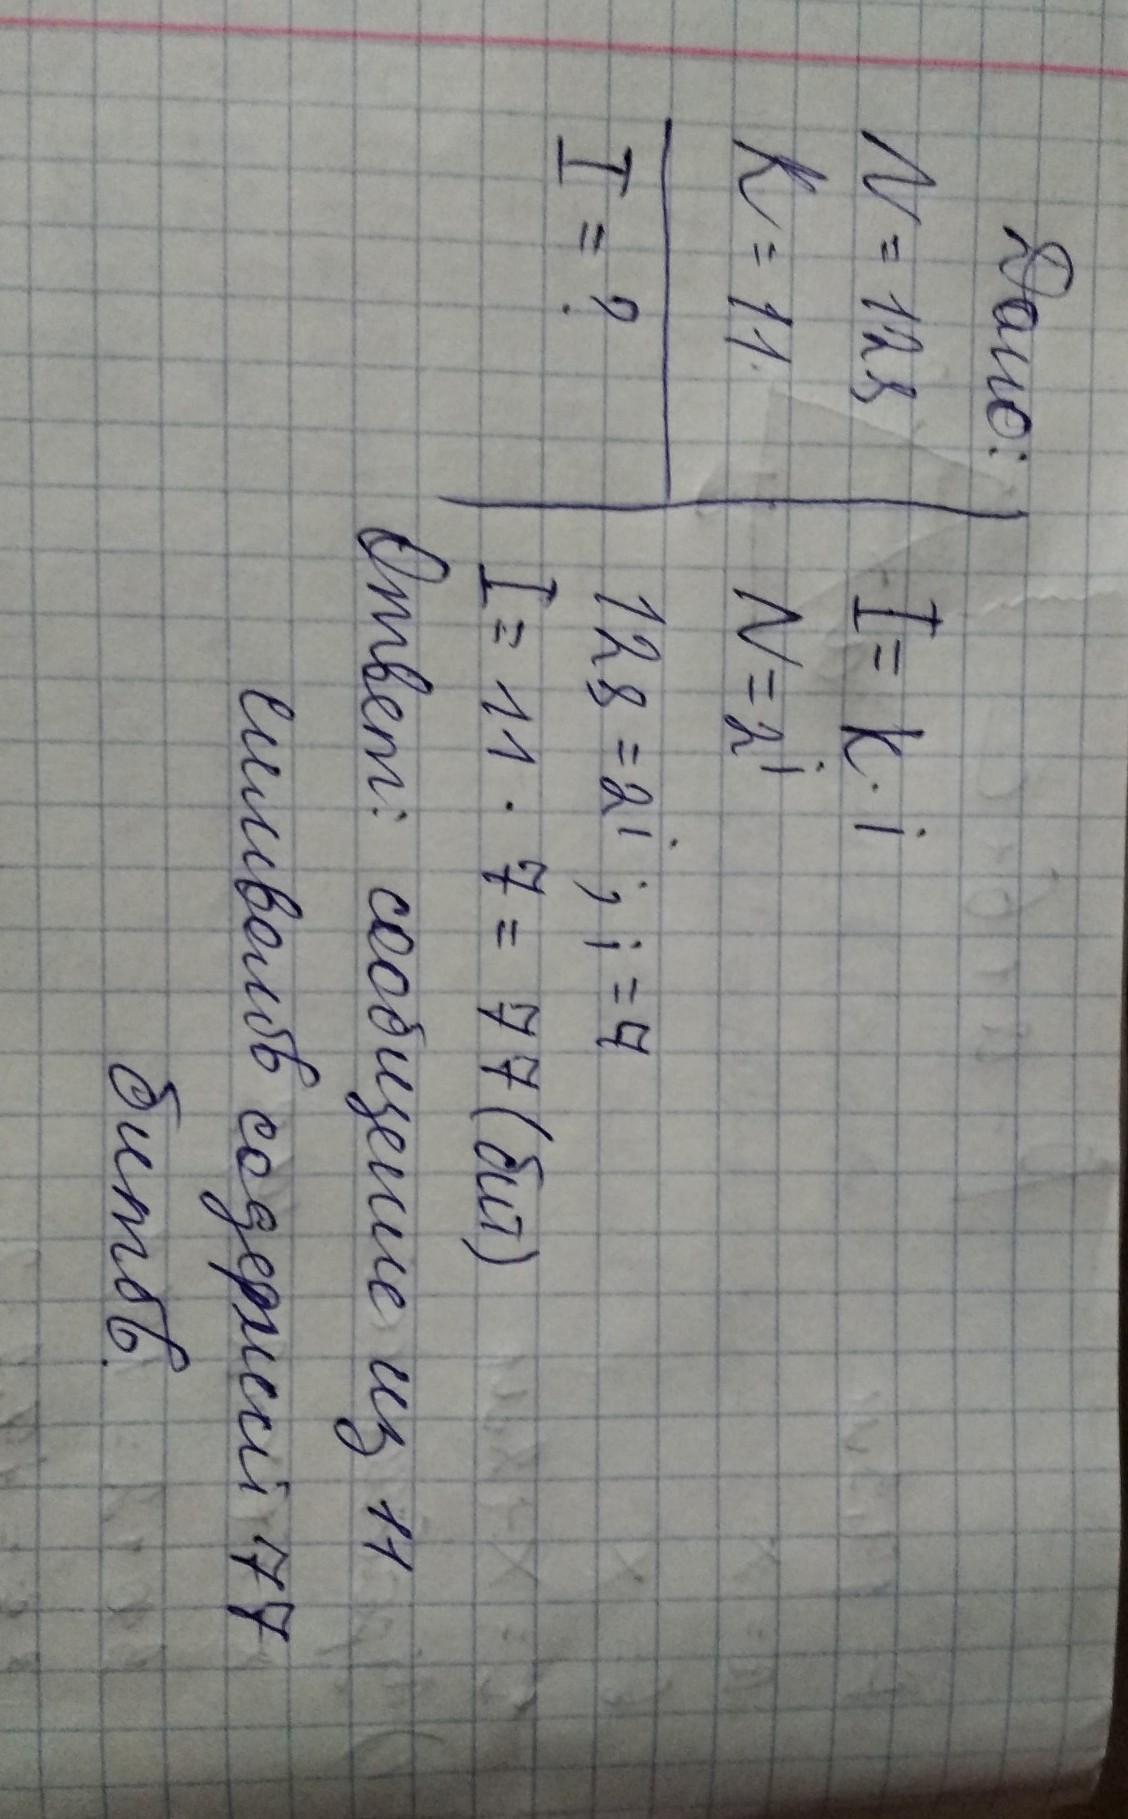 Дано:
N = 128
K = 11
I = ?
I = K · i
N = 2^i
128 = 2^i ; i = 7
I = 11 · 7 = 77 (бит)
Ответ: сообщение из 11
символов содержит 77
битов.